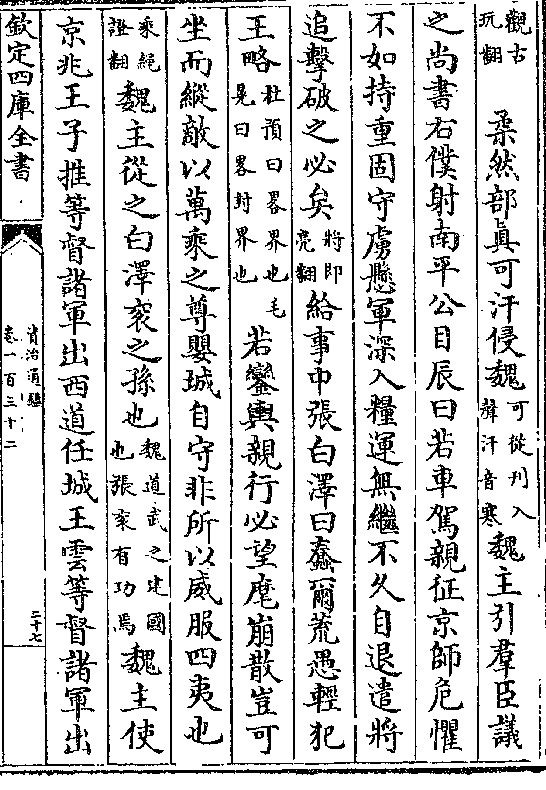 觀古玩翻　柔然部眞可汗侵魏可從刋入聲汗音寒魏主引羣臣議
之尚書右僕射南平公目辰曰若車駕親征京師危懼
不如持重固守虜懸軍深入糧運無繼不久自退遣將
追擊破之必矣將即亮翻給事中張白澤曰蠢爾荒愚輕犯
王略杜預曰畧界也毛晃曰畧封界也若鑾輿親行必望麾崩散豈可
坐而縱敵以萬乘之尊嬰城自守非所以威服四夷也
乘繩證翻魏主從之白澤衮之孫也魏道武之建國也張衮有功焉魏主使
京兆王子推等督諸軍出西道任城王雲等督諸軍出
欽定四庫全書
資治通鑑
卷一百三十二
二十七